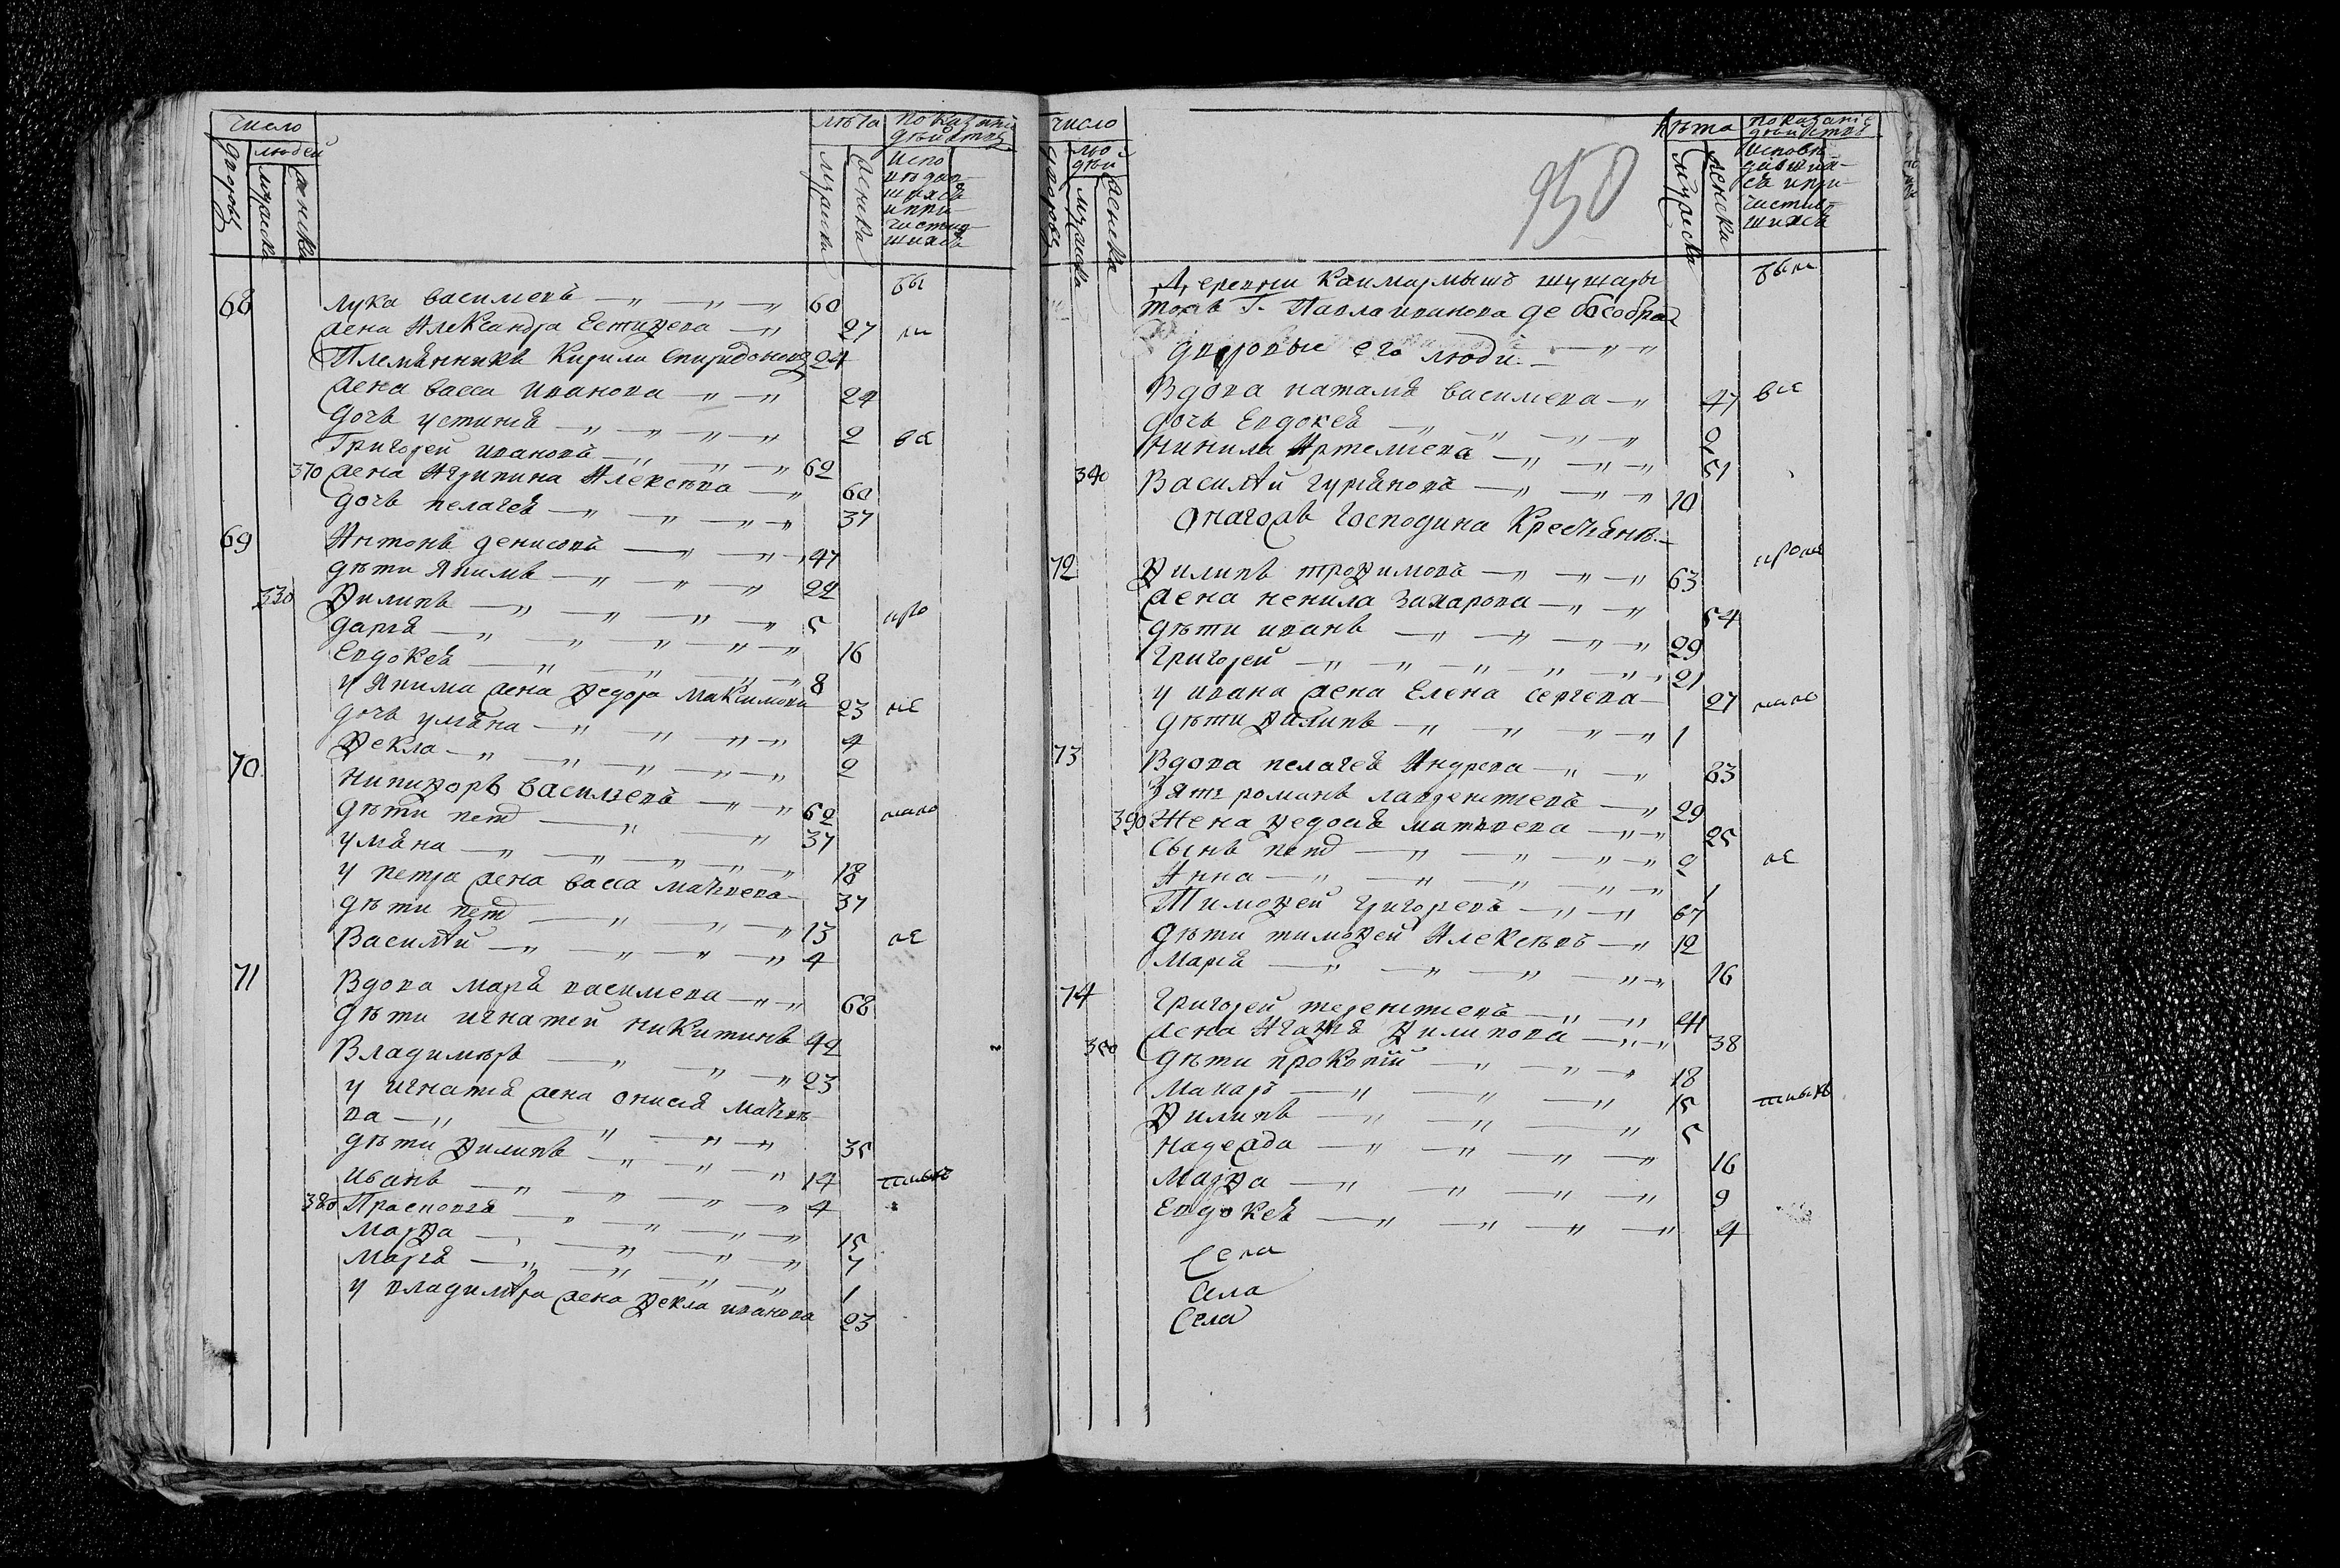 число
людей
дворовъ
мужеска
женска
лѣта
мужеска
женска
показаніи
дѣйствъ
испо
вѣдав
шихся
и при
частив
шихся
68 Лука Васильевъ 60 бы
жена Александра Естифеева 27 ли
Племянникъ Кирила Спиридоновъ 24
жена Васса Иванова 24
дочь Устинья 2
Григорей Ивановъ 62 вс
370 жена Агрипина Алексѣва 60
дочь Пелагея 37
69 Антонъ Денисовъ 47
дѣти Якимъ 22
330 Филипъ 5 иро
Дарья 16
Евдокея 8
у Якима жена Федора Максимова 23
дочь Ульяна 4
Фекла 2
70 Никифоръ Васильевъ 62
дѣти Петръ 37
Ульяна 18
у Петра жена Васса Матвеева 37
дѣти Петръ 13
Василѣй 4
71 Вдова Марья Васильева 68
дѣти Игнатей Никитинъ 42
Владимѣръ 23
у Игнатья жена Онисья Матвѣ
ва 35
дѣти Филипъ 14
Иванъ 4
380 Прасковья 15
Марфа 7
Марья 1
у Владимѣра жена Фекла Иванова 23
число
лю
дѣй
дворовъ
мужеска
женска
950
лѣта
мужеска
женска
показаніе
дѣйствъ
исповѣ
давший
ся и при
частив
шихся
Деревни Каймарлышъ
тожъ Г. Павла Иванова де
дворовые его люди были
Вдова Наталья Васильева 47 вс
дочь Евдокея 9
Нинила Артемьева 51
340 Василѣй Гурьяновъ 10
Онагожъ господина Крестьянѣ
72 Филипъ Трофимовъ 63
жена Ненила Захарова 54
дѣти Иванъ 29
Григорей 21
у Ивана жена Елена Сергева 27
дѣти Филипъ 1
73 Вдова Пелагея Андрева 83
Зять Романъ 29
390 Жена Федосья Матвеева 25
Сынъ Петръ 2
Анна 1
Тимофей Григоревъ 67
дѣти Тимофей Алексѣвъ 12
Марья 16
74 Григорей Терентиевъ 41
жена Агафья Филипова 38
350 дѣти Прокопий 18
Макаръ 15
Филипъ 5
Надежда 16
Марфа 9
Евдокея 4
Села
Села
Села